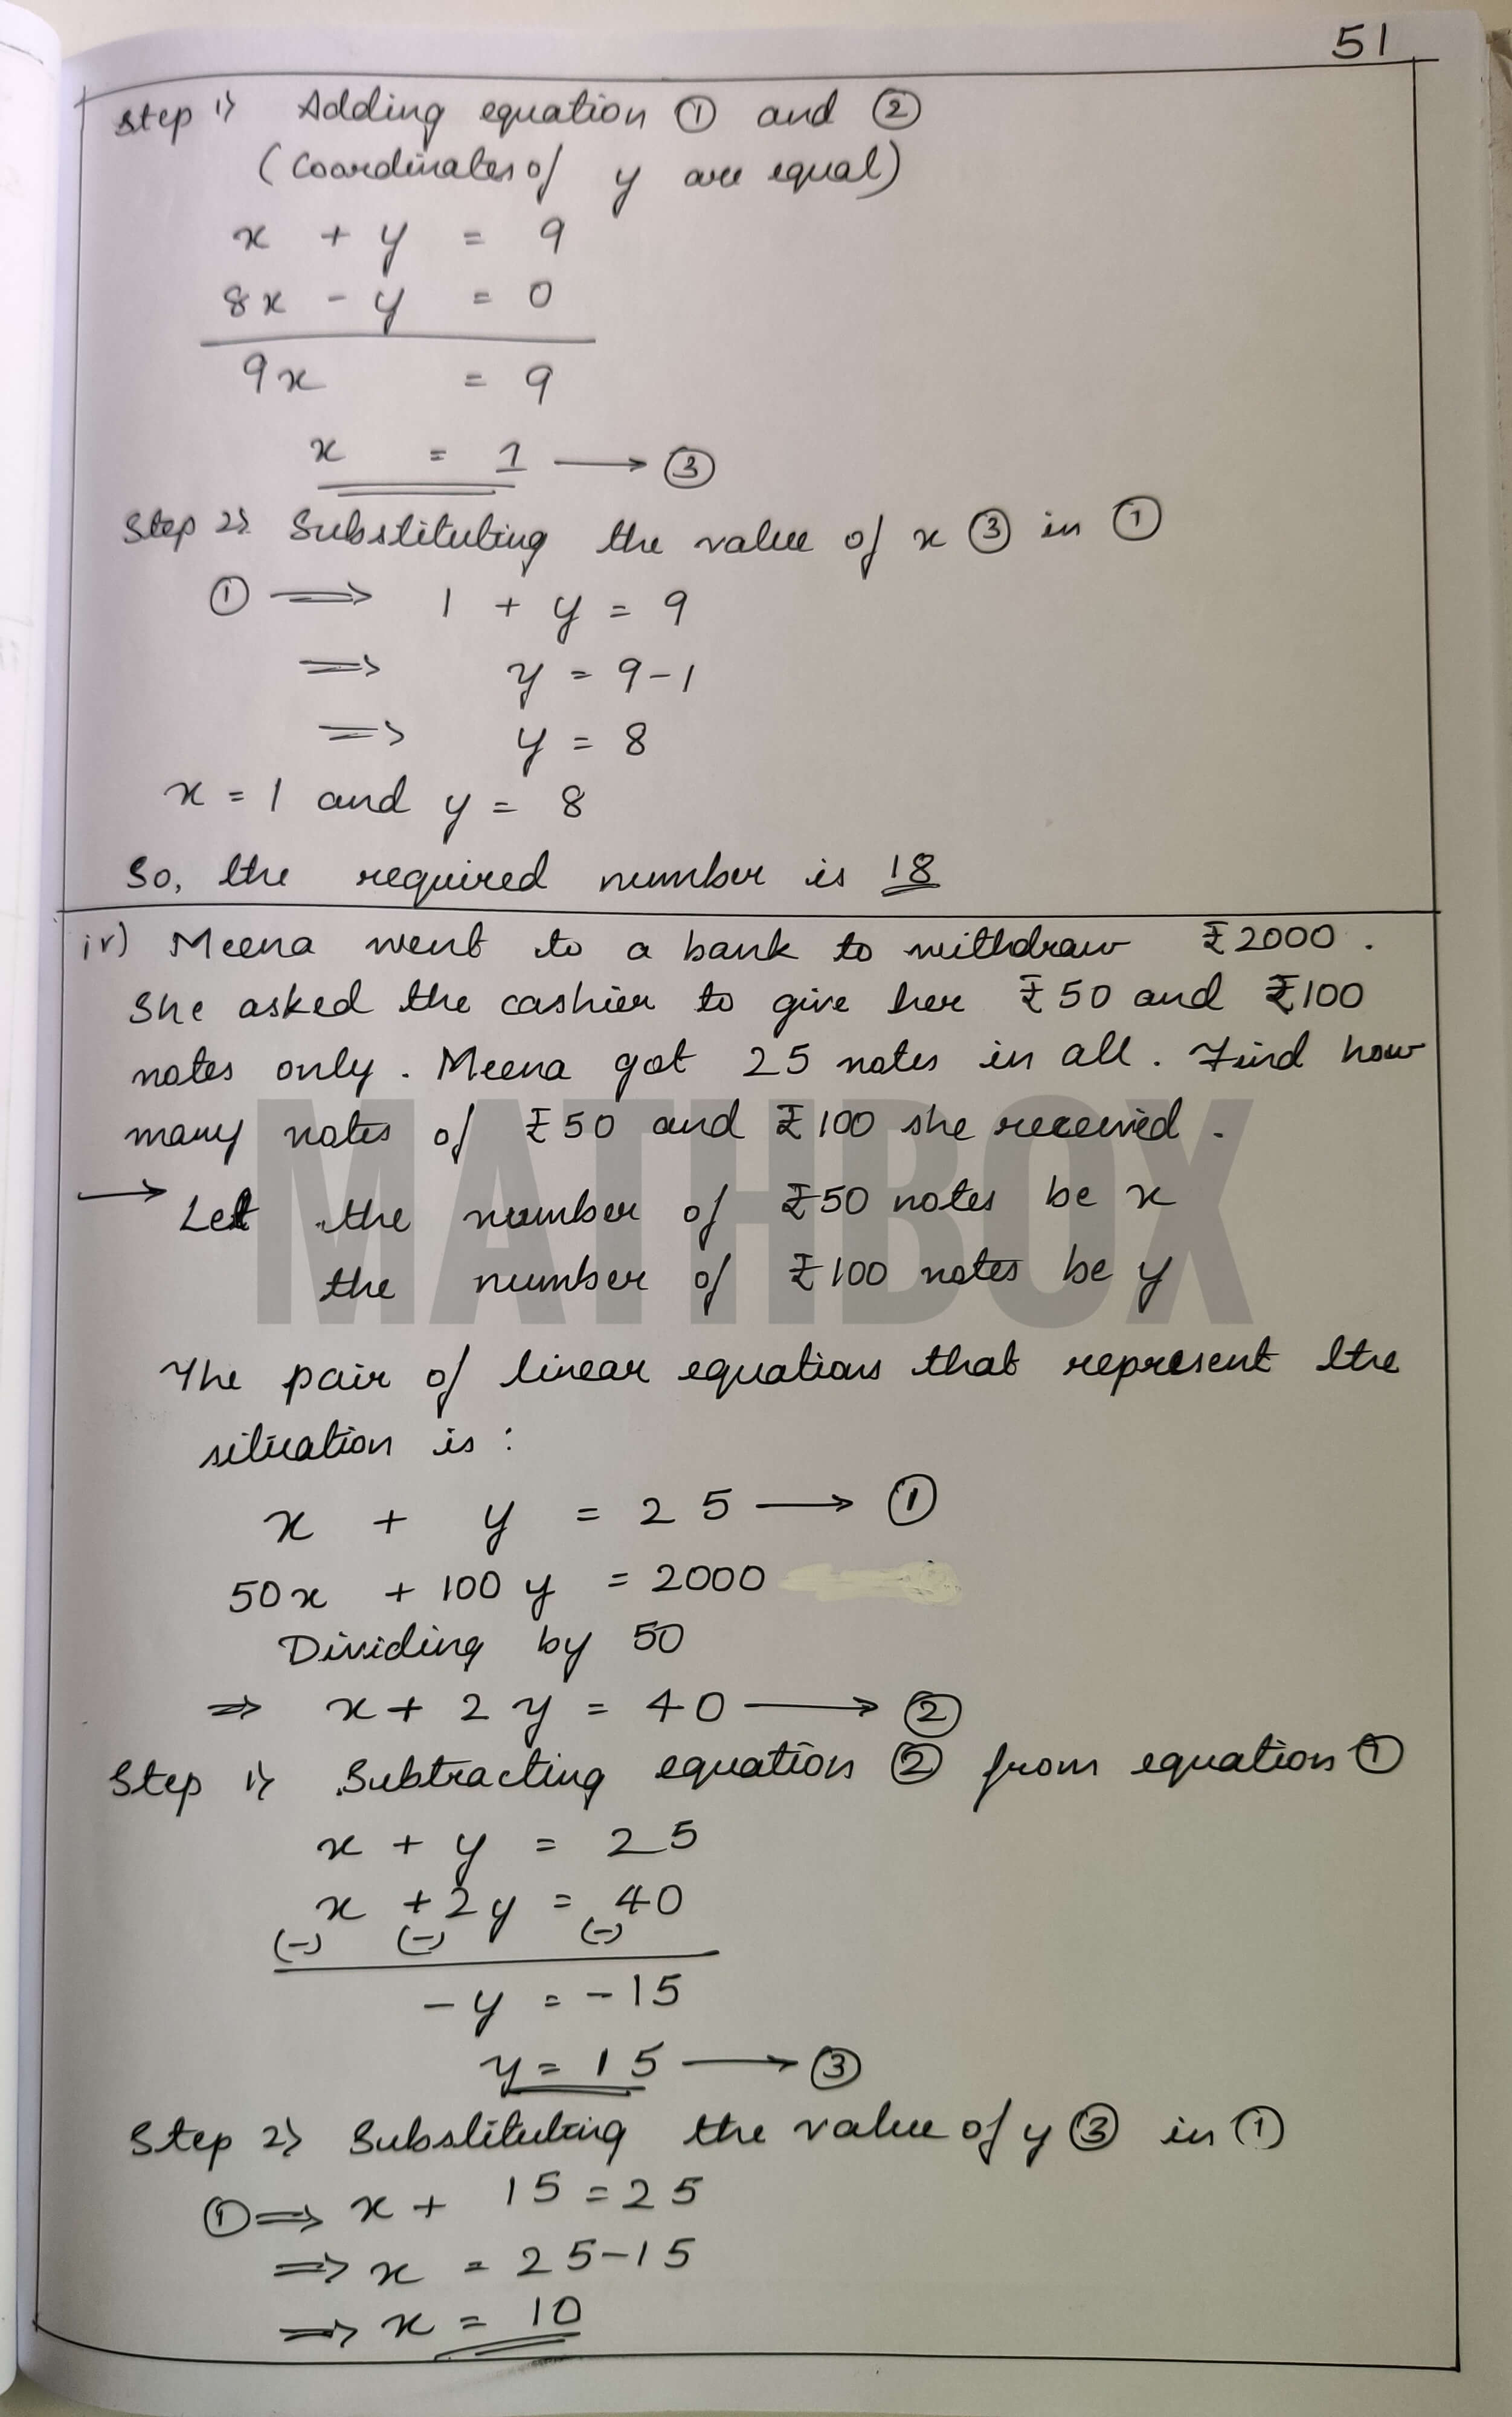 51
Step 1) Adding equation ① and ②
(Coordinates of y are equal)
x + y = 9
8x - y = 0
9x = 9
x = 1 ⟶ ③
Step 2) Substituting the value of x ③ in ①
① ⟹ 1 + y = 9
⟹ y = 9-1
⟹ y = 8
x = 1 and y = 8
So, the required number is 18
iv) Meena went to a bank to withdraw ₹2000.
She asked the cashier to give her ₹50 and ₹100
notes only. Meena got 25 notes in all. Find how
many notes of ₹50 and ₹100 she received.
MATHBOX
⟶ Let the number of ₹50 notes be x
the number of ₹100 notes be y
The pair of linear equations that represent the
situation is :
x + y = 25 ⟶ ①
50x + 100y = 2000
Dividing by 50
⇒ x + 2y = 40 ⟶ ②
Step 1) Subtracting equation ② from equation ①
x + y = 25
x + 2y = 40
(-) (-) (-)
-y = -15
y = 15 ⟶ ③
Step 2) Substituting the value of y ③ in ①
① ⟹ x + 15 = 25
⟹ x = 25-15
⟹ x = 10